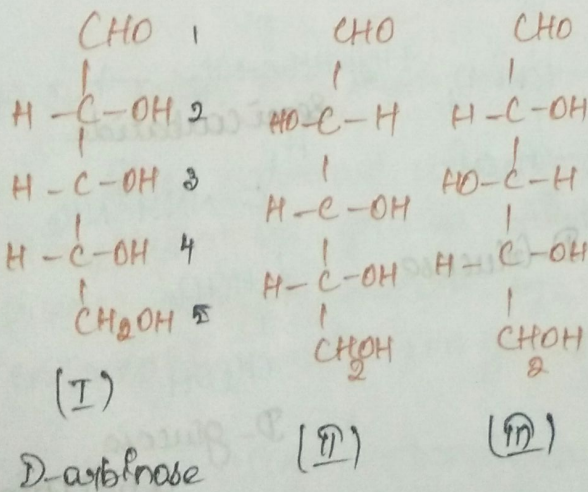 CHO 1
H-C-OH 2
H-C-OH 3
H-C-OH 4
CH2OH 5
(I)
D-arbinose
CHO
HO-C-H
H-C-OH
H-C-OH
CH2OH
(II)
CHO
H-C-OH
HO-C-H
H-C-OH
CH2OH
(III)